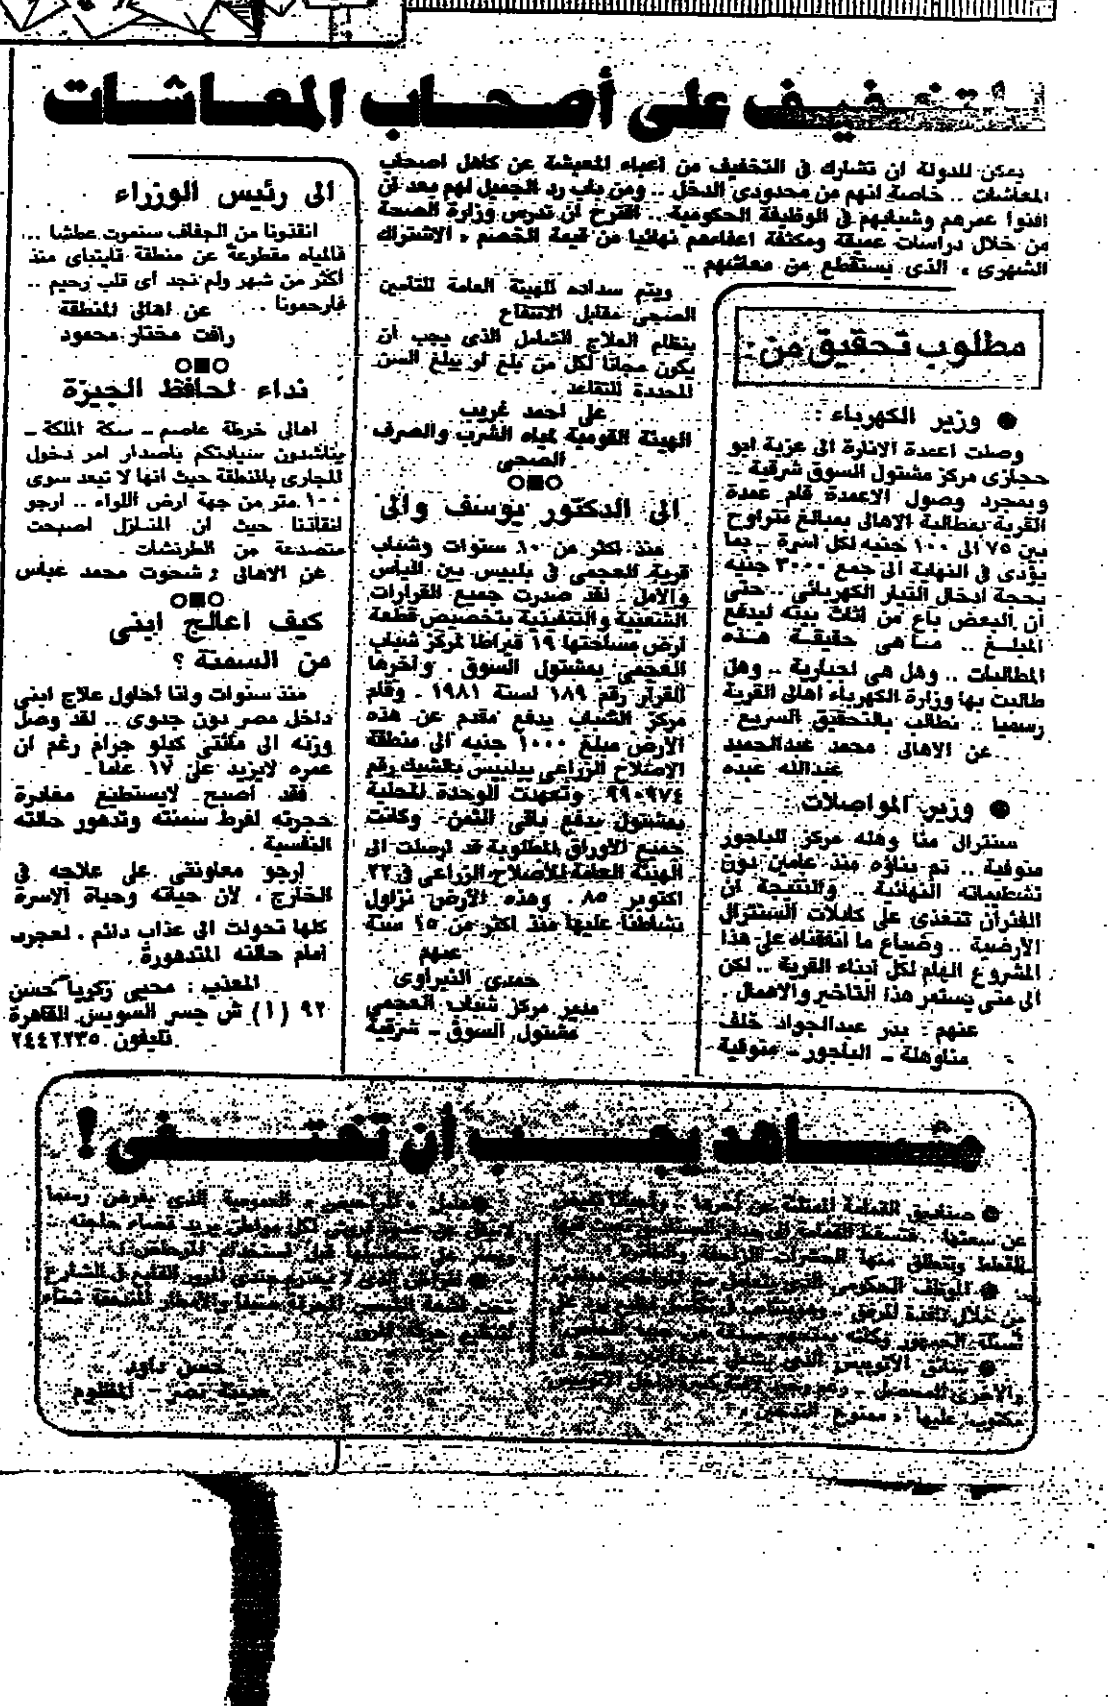 التخفيف على أصحاب المعاشات
يمكن للدولة ان تشارك فى التخفيف من اعباء المعيشة عن كاهل اصحاب
المعاشات .. خاصة انهم من محدودى الدخل .. ومن باب رد الجميل لهم بعد ان
افنوا عمرهم وشبابهم فى الوظيفة الحكومية .. اقترح ان تدرس وزارة الصحة
من خلال دراسات عميقة ومكثفة اعفاءهم نهائيا من قيمة الخصم « الاشتراك
الشهرى » الذى يستقطع من معاشهم ..
ويتم سداده للهيئة العامة للتأمين
الصحى مقابل الانتفاع
بنظام العلاج الشامل الذى يجب ان
يكون مجانا لكل من بلغ او يبلغ السن
المحددة للتقاعد .
على احمد غريب
الهيئة القومية لمياه الشرب والصرف
الصحى
مطلوب تحقيق من :
● وزير الكهرباء :
وصلت اعمدة الانارة الى عزبة ابو
حجازى مركز مشتول السوق شرقية ..
وبمجرد وصول الاعمدة قام عمدة
القرية بمطالبة الاهالى بمبالغ تتراوح
بين ٧٥ الى ١٠٠ جنيه لكل اسرة .. بما
يؤدى فى النهاية الى جمع ٣٠٠٠ جنيه
بحجة ادخال التيار الكهربائى .. حتى
ان البعض باع من اثاث بيته ليدفع
المبلغ .. ما هى حقيقة هذه
المطالبات .. وهل هى اجبارية .. وهل
طالبت بها وزارة الكهرباء اهالى القرية
رسميا .. نطالب بالتحقيق السريع .
عن الاهالى : محمد عبدالحميد
عبدالله عبده
● وزير المواصلات
سنترال منا وهله مركز الباجور
منوفية .. تم بناؤه منذ عامين بدون
تشطيباته النهائية .. والنتيجة ان
الفئران تتغذى على كابلات السنترال
الأرضية .. وضياع ما انفقناه على هذا
المشروع الهام لكل ابناء القرية .. لكن
الى متى يستمر هذا التأخير والاهمال .
عنهم : بدر عبدالجواد خلف
مناوهلة ــ الباجور ــ منوفية
الى الدكتور يوسف والى
منذ اكثر من ١٠ سنوات وشباب
قرية العجمى فى بلبيس بين اليأس
والامل .. لقد صدرت جميع القرارات
الشعبية والتنفيذية بتخصيص قطعة
ارض مساحتها ١٩ قيراطا لمركز شباب
العجمى بمشتول السوق . وآخرها
القرار رقم ١٨٩ لسنة ١٩٨١ . وقام
مركز الشباب بدفع مقدم عن هذه
الأرض مبلغ ١٠٠٠ جنيه الى منطقة
الاصلاح الزراعى ببلبيس بالشيك رقم
٩٩٠٩٧٤ . وتعهدت الوحدة المحلية
بمشتول بدفع باقى الثمن . وكانت
جميع الأوراق المطلوبة قد ارسلت الى
الهيئة العامة للأصلاح الزراعى فى ٢٢
اكتوبر ٨٥ . وهذه الأرض نزاول
نشاطنا عليها منذ اكثر من ١٥ سنة
عنهم
حمدى النبراوى
مدير مركز شباب العجمى
مشتول السوق ــ شرقية
الى رئيس الوزراء
انقذونا من الجفاف سنموت عطشا ..
فالمياه مقطوعة عن منطقة قايتباى منذ
أكثر من شهر ولم نجد اى قلب رحيم ..
فارحمونا .. عن اهالى المنطقة
رافت مختار محمود
نداء لمحافظ الجيزة
اهالى خرطة عاصم ــ سكة الملكة ــ
يناشدون سيادتكم باصدار امر دخول
المجارى بالمنطقة حيث انها لا تبعد سوى
١٠٠ متر من جهة ارض اللواء .. ارجو
انقاذنا حيث ان المنازل اصبحت
متصدعة من الطرنشات .
عن الاهالى : شحوت محمد عباس
كيف اعالج ابنى
من السمنة ؟
منذ سنوات وانا احاول علاج ابنى
داخل مصر بدون جدوى .. لقد وصل
وزنه الى مائتى كيلو جرام رغم ان
عمره لايزيد على ١٧ عاما .
فقد اصبح لايستطيع مغادرة
حجرته لفرط سمنته وتدهور حالته
النفسية .
ارجو معاونتى على علاجه فى
الخارج ، لان حياته وحياة الاسرة
كلها تحولت الى عذاب دائم . لعجزى
امام حالته المتدهورة .
المعذب : محيى زكريا حسن
٩٢ (١) ش جسر السويس القاهرة
تليفون ٢٤٤٢٢٣٥
مشاهد يجب أن تختفى !
● صناديق القمامة الممتلئة عن آخرها
القطط وينطلق منها الحشرات
● الموظف الحكومى الذى يتعامل مع المواطنين
من خلال نافذة
● سائق الأتوبيس الذى يشعل سيجارة
مكتوب عليها « ممنوع التدخين »
لكل مواطن يريد قضاء حاجته
● المواطن الذى لا يحترم جندى المرور القابع فى الشارع
تحت اشعة الشمس المحرقة صيفا والأمطار
لتنظيم حركة المرور
حسن داود
مدينة نصر ــ المقطوم